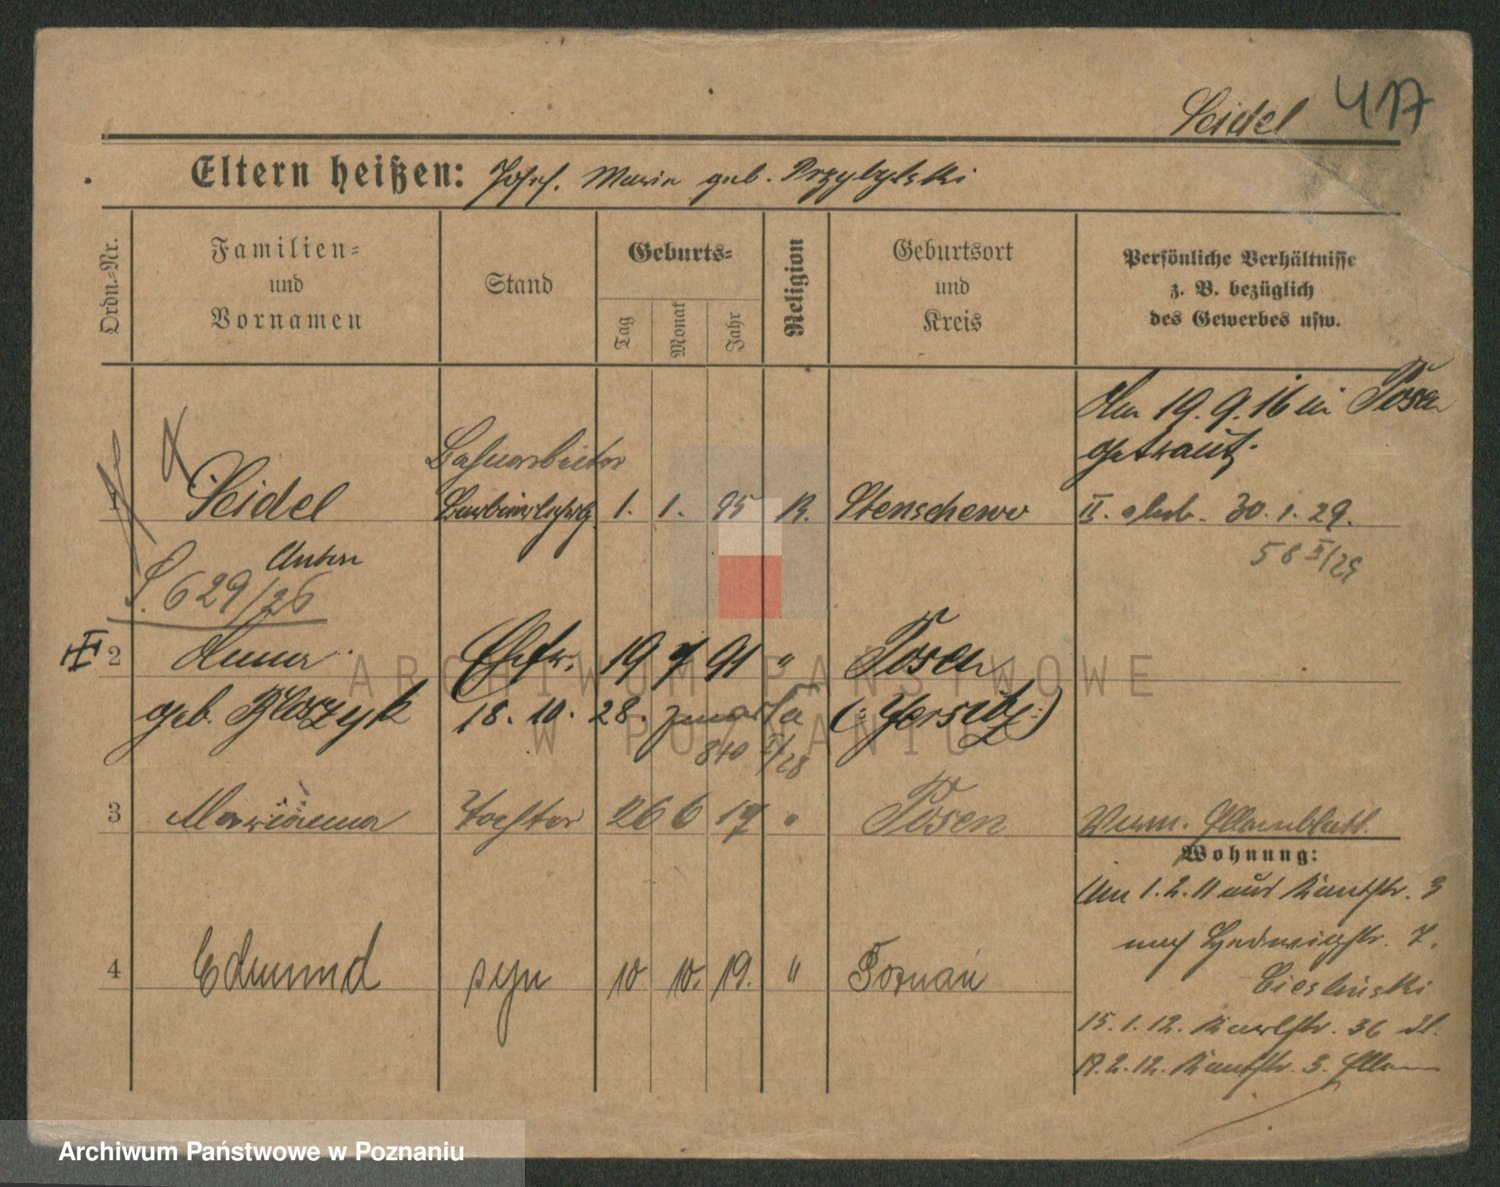 Seidel 417
Eltern heißen: Josef. Marie geb. Przybylski
Ordn.-Nr.
Familien-
und
Vornamen
Stand
Geburts-
Tag
Monat
Jahr
Religion
Geburtsort
und
Kreis
Persönliche Verhältnisse
z. B. bezüglich
des Gewerbes usw.
Am 19. 9. 16 in Posen
getraut.
Bahnarbeiter
Seidel 1. 1. 95 K. Stenschewo II. 30. 1. 29.
58 X/29
Anton
S. 629/26
2 Anna Ehefr. 19 7 91 " Posen
geb. 18. 10. 28. zmarła (Jersitz)
840 X/28
3 Marianna Tochter 26 6 17 " Posen
Wohnung:
Am 1. 2. 11 aus Kantstr. 3
nach Hedwigstr. 7.
Ciesliński
4 Edmund syn 10 10. 19. " Poznań
15. 1. 12. Karlstr. 36
19. 2. 12. Kantstr. 3.
ARCHIWUM PAŃSTWOWE
W POZNANIU
Archiwum Państwowe w Poznaniu